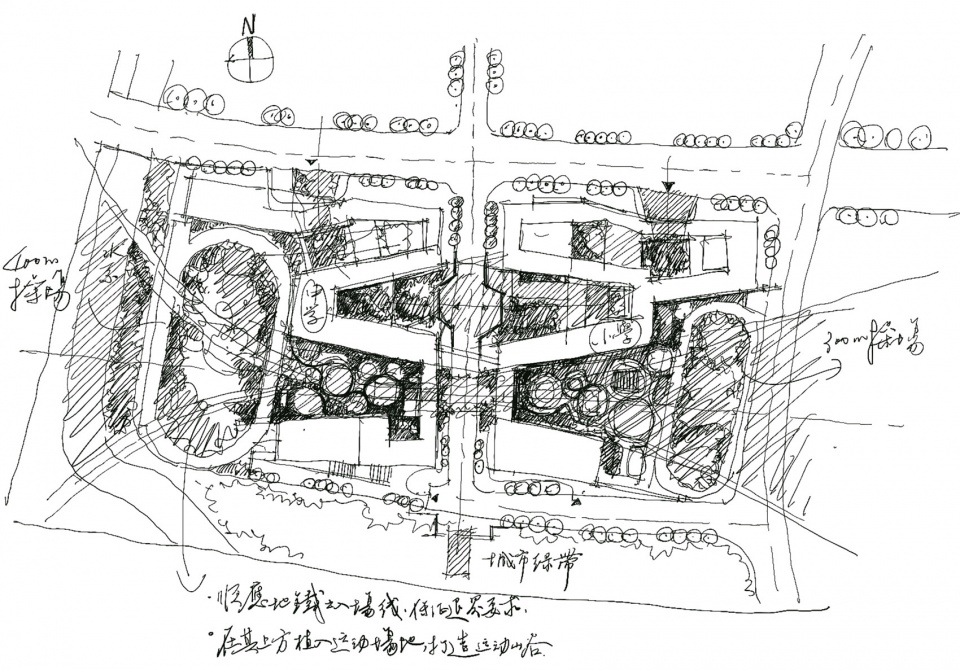 N
400m
操场
水系
中学
小学
300m操场
城市绿带
·顺应地鐵出入場线,保留退界要求.
·在其上方植入运动場地,打造运动山谷